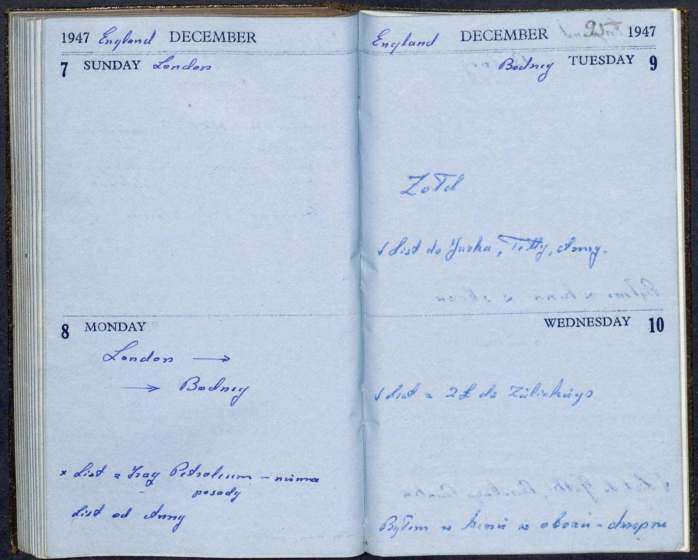 1947 England DECEMBER
7 SUNDAY London
8 MONDAY
London →
→ Bodney
x List z Iraq Petroleum - niema
posady
List od Anny
England DECEMBER 25 1947
Bodney TUESDAY 9
Żołd
√ List do Jurka, Tetty, Anny.
WEDNESDAY 10
√ List z 2£ do
Byłem w kinie w obozie -